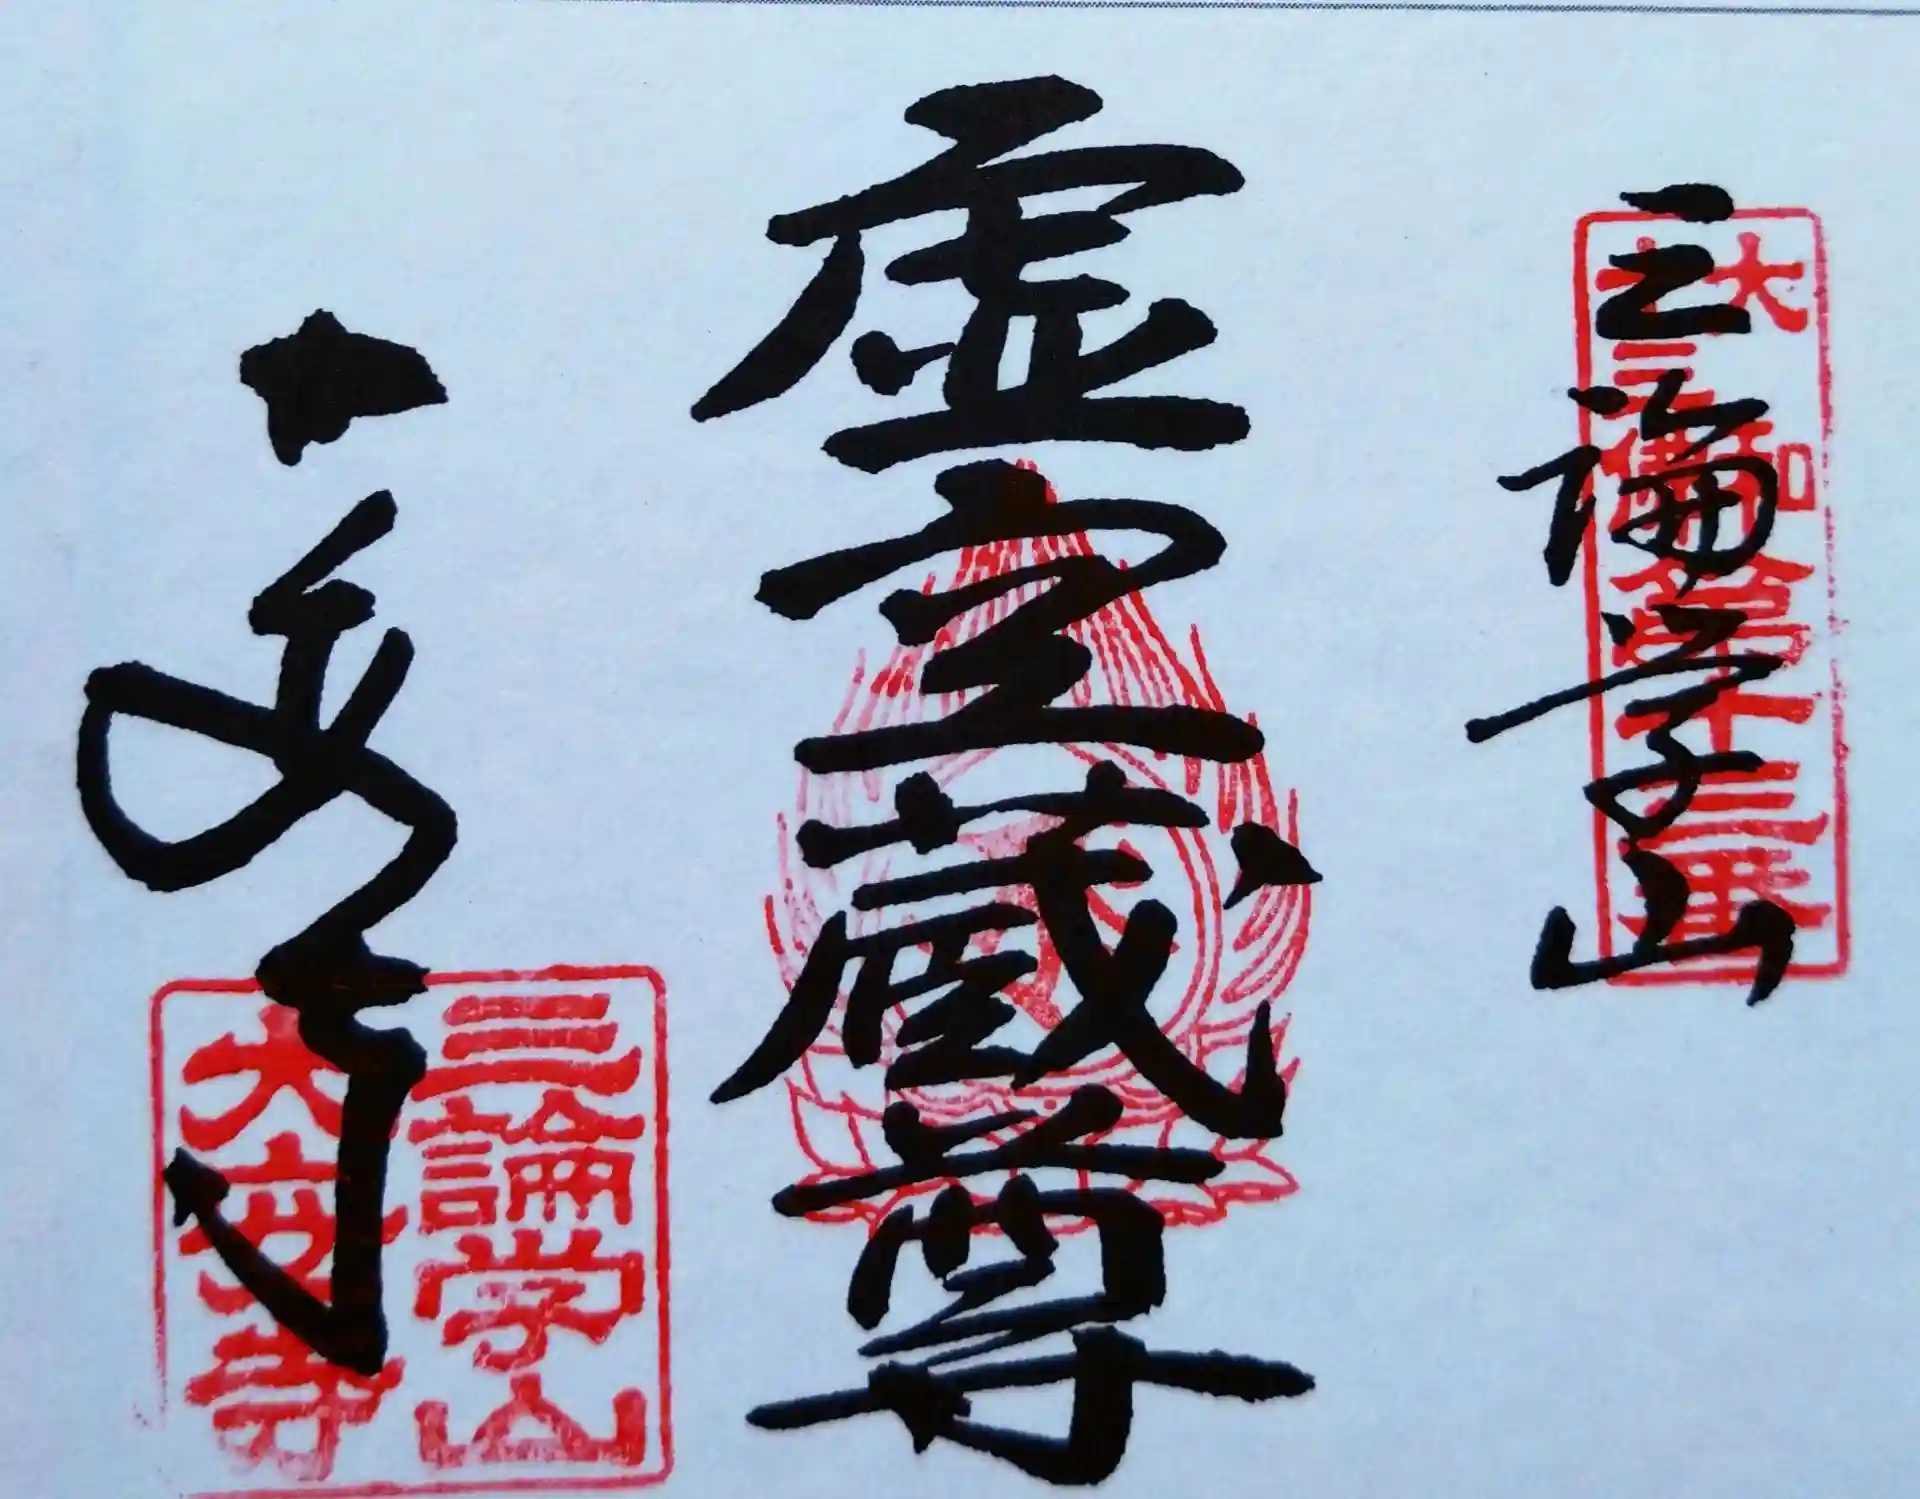 三論学山
大和
十三仏第十三番
虚空蔵尊
大安寺
三論学山
大安寺